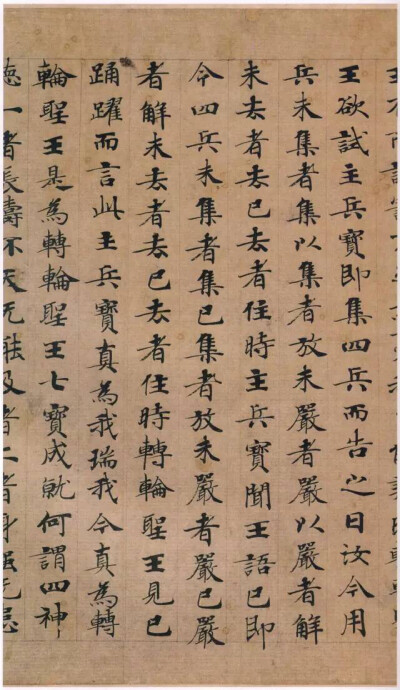 王欲試主兵寶即集四兵而告之曰汝今用
兵未集者集以集者放未嚴者嚴以嚴者解
未去者去已去者住時主兵寶聞王語已即
令四兵未集者集已集者放未嚴者嚴已嚴
者解未去者去已去者住時轉輪聖王見已
踊躍而言此主兵寶真為我瑞我今真為轉
輪聖王是為轉輪聖王七寶成就何謂四神
德一者長壽不夭无能及者二者身强无患